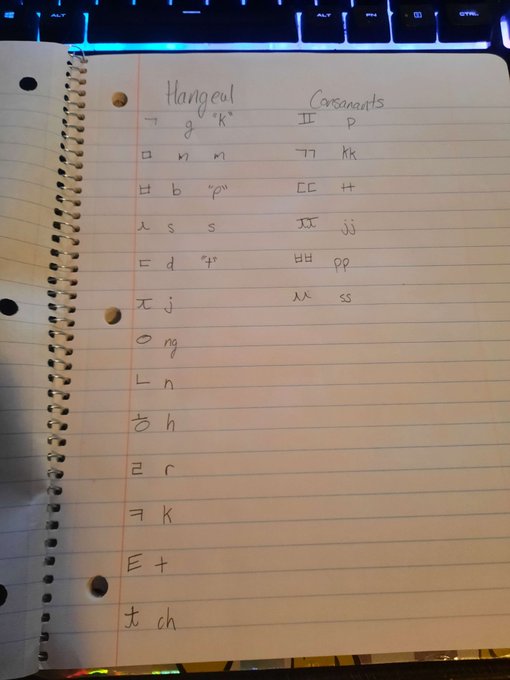 ALT ALT FN CTRL
Hangeul Consanants
ㄱ g "k" ㅍ p
ㅁ m m ㄲ kk
ㅂ b "p" ㄸ tt
ㅅ s s ㅉ jj
ㄷ d "t" ㅃ pp
ㅈ j ㅆ ss
ㅇ ng
ㄴ n
ㅎ h
ㄹ r
ㅋ k
ㅌ t
ㅊ ch